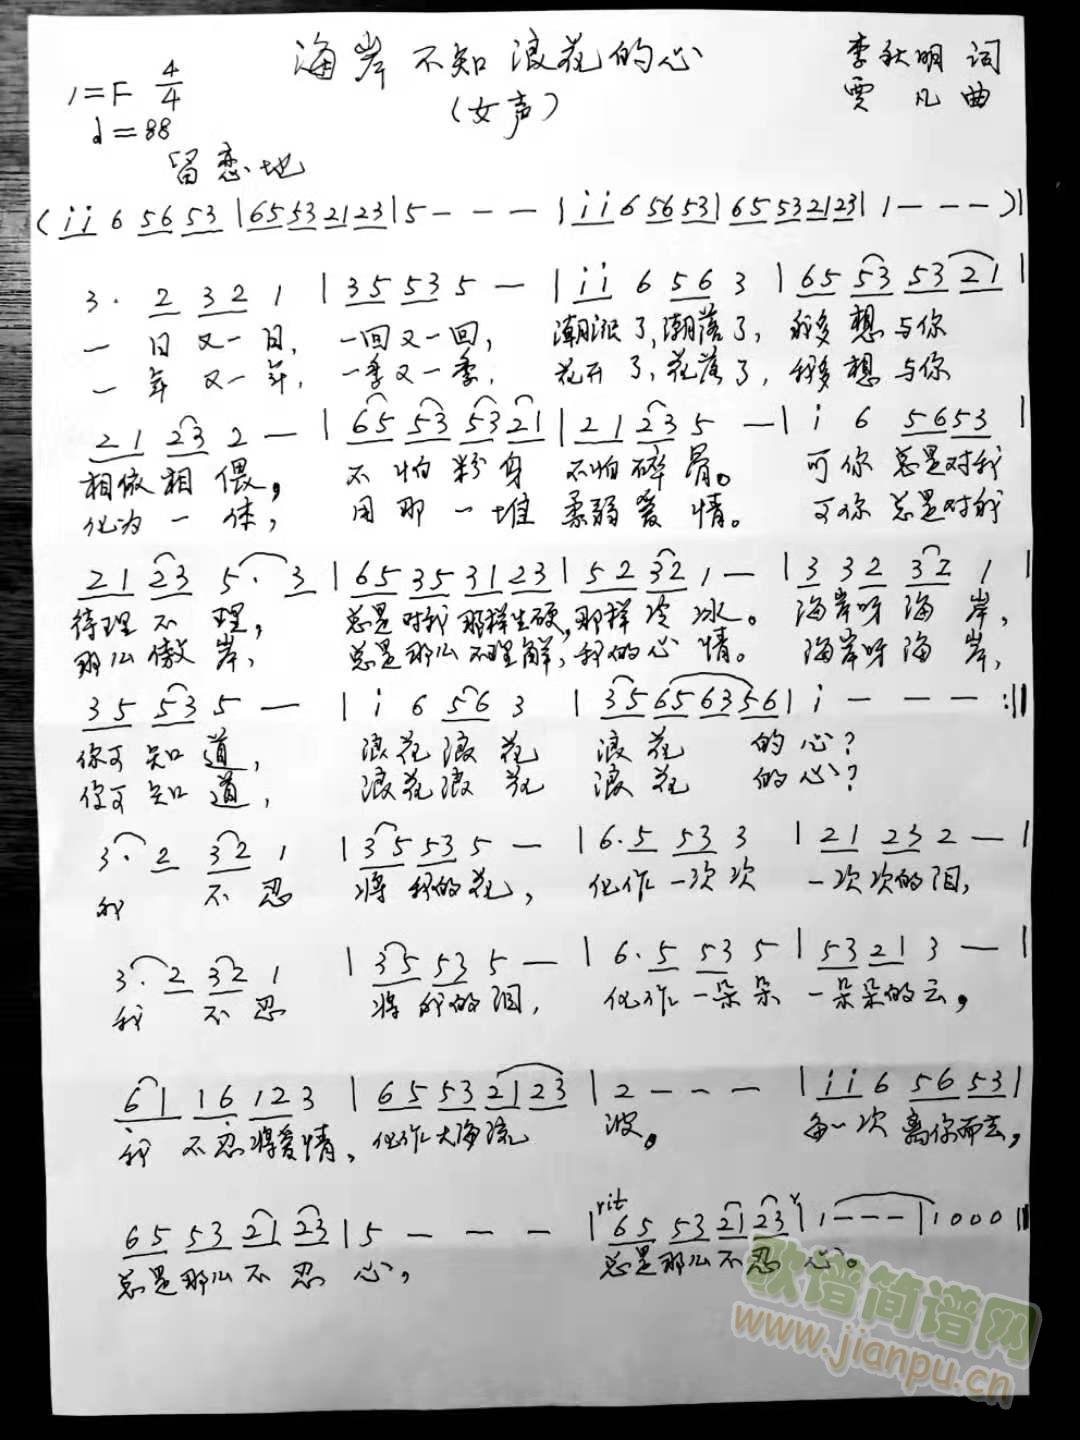 海岸不知浪花的心
李秋明 词
1=F 4/4
(女声)
贾凡曲
♩=88
留恋地
(i i 6 5 6 5 3 | 6 5 5 3 2 1 2 3 | 5 - - - | i i 6 5 6 5 3 | 6 5 5 3 2 1 2 3 | 1 - - - ) |
3 · 2 3 2 1 | 3 5 5 3 5 - | i i 6 5 6 3 | 6 5 5 3 5 3 2 1 |
一 日 又一日, 一回又一回, 潮涨了,潮落了, 我多想与你
一 年 又一年, 一季又一季, 花开了,花落了, 我多想与你
2 1 2 3 2 - | 6 5 5 3 5 3 2 1 | 2 1 2 3 5 - | i 6 5 6 5 3 |
相依相偎, 不怕粉身 不怕碎骨。 可你总是对我
化为一体, 用那一堆 柔弱爱情。 可你总是对我
2 1 2 3 5 · 3 | 6 5 3 5 3 1 2 3 | 5 2 3 2 1 - | 3 3 2 3 2 1 |
待理不理, 总是对我那样生硬,那样冷冰。 海岸呀海岸,
那么傲岸, 总是那么不理解,我的心情。 海岸呀海岸,
3 5 5 3 5 - | i 6 5 6 3 | 3 5 6 5 6 3 5 6 | i - - - :||
你可知道, 浪花浪花 浪花 的心?
你可知道, 浪花浪花 浪花 的心?
3 · 2 3 2 1 | 3 5 5 3 5 - | 6 · 5 5 3 3 | 2 1 2 3 2 - |
我 不忍 将我的花, 化作一次次 一次次的泪,
3 · 2 3 2 1 | 3 5 5 3 5 - | 6 · 5 5 3 5 | 5 3 2 1 3 - |
我 不忍 将我的泪, 化作一朵朵 一朵朵的云,
6 1 1 6 1 2 3 | 6 5 5 3 2 1 2 3 | 2 - - - | i i 6 5 6 5 3 |
我 不忍将爱情, 化作大海流 波。 每一次离你而去,
rit
6 5 5 3 2 1 2 3 | 5 - - - | 6 5 5 3 2 1 2 3 | 1 - - - | 1 0 0 0 ||
总是那么不忍心, 总是那么不忍心。
歌谱简谱网
www.jianpu.cn